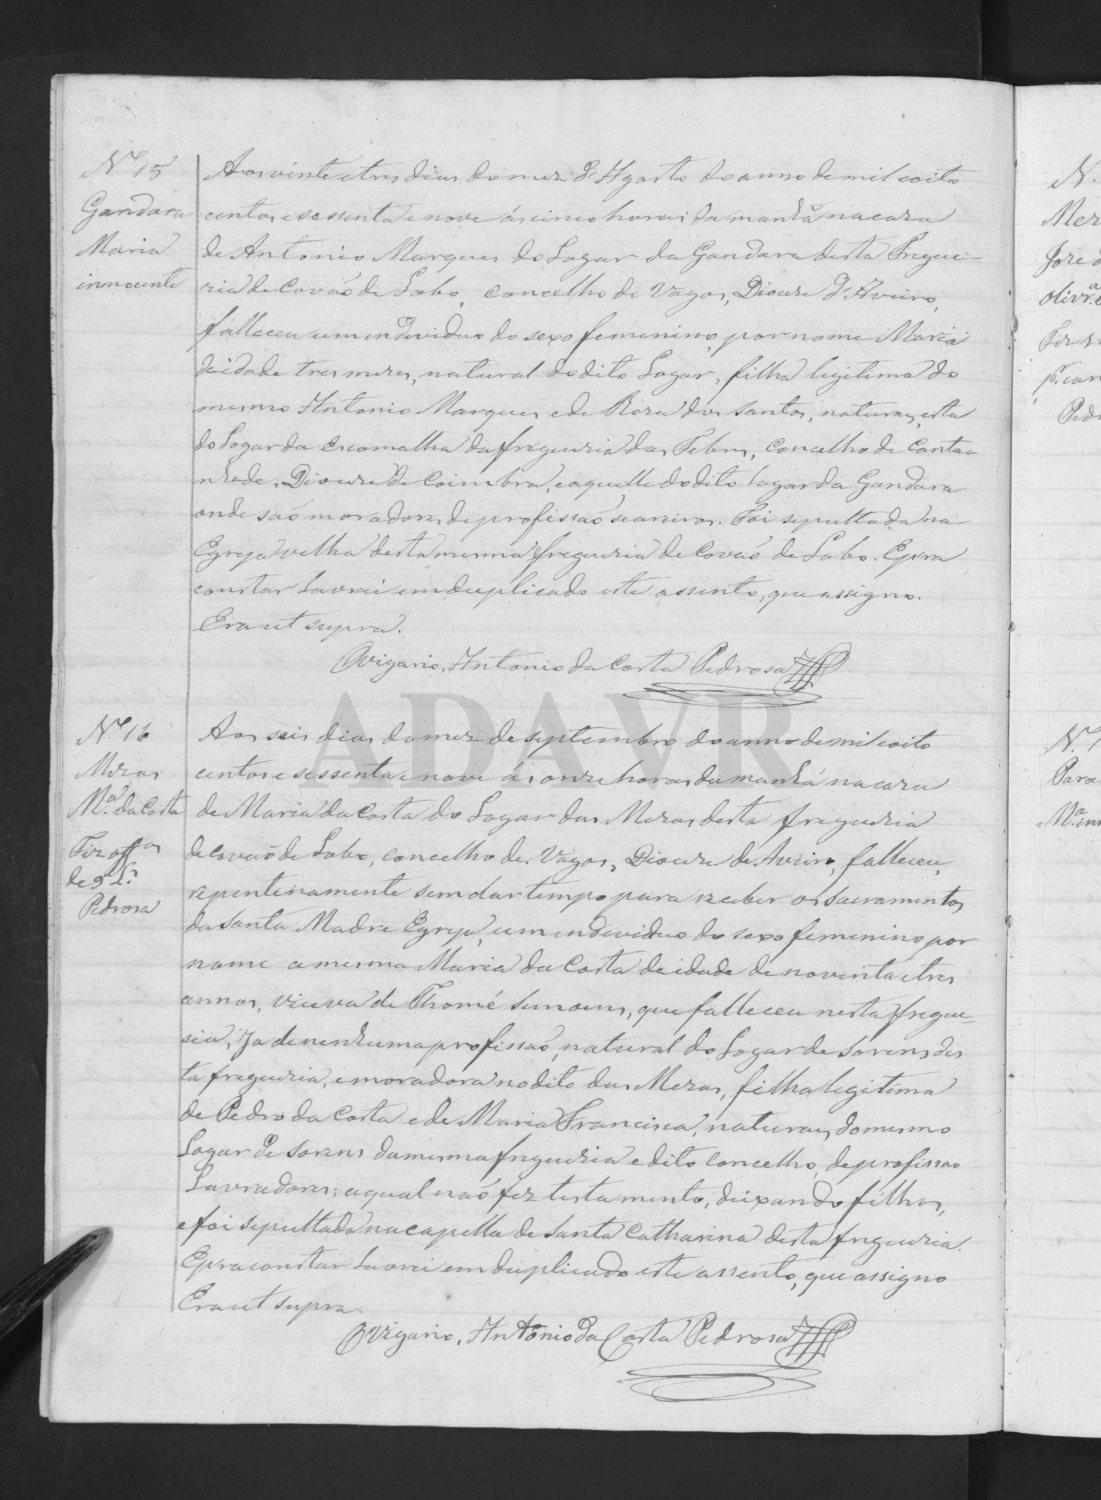 Nº 15
Gandara
Maria
innocente
Aos vinte e tres dias do mez d'Agosto do anno de mil e oito
centos e sessenta e nove ás cinco horas da manhã na caza
de Antonio Marques do Lugar da Gandara desta Fregue-
zia de Covaõ de Lobo, concelho de Vagos, Diocese d'Aveiro,
falleceu um individuo do sexo femenino, por nome Maria
de idade tres mezes, natural do dito Lugar, filha legitima do
mesmo Antonio Marques e de Roza dos Santos, naturaes, esta
do Lugar da Escomalha da freguezia das Febres, Concelho de Canta-
nhede, Diocese de Coimbra, e aquelle do dito lugar da Gandara
onde saõ moradores de profissaõ seareiros. Foi sepultada na
Egreja velha desta mesma freguezia de Covaõ de Lobo. E p.ra
constar lavrei em duplicado este assento, que assigno.
Era ut supra.
O Vigario, Antonio da Costa Pedrosa
ADAVR
Nº 16
Mezas
M.ª da Costa
Fiz off.os
de 9 L.
Pedrosa
Aos seis dias do mez de septembro do anno de mil e oito
centos e sessenta e nove ás onze horas da manhã na caza
de Maria da Costa do Lugar das Mezas desta freguezia
de Covaõ de Lobo, concelho de Vagos, Diocese de Aveiro, falleceu,
repentinamente sem dar tempo para receber os sacramentos
da Santa Madre Egreja, um individuo do sexo femenino por
nome a mesma Maria da Costa de idade de noventa e tres
annos, viuva de Thomé Simoens, que falleceu nesta fregue-
sia, ja de nenhuma profissaõ, natural do Lugar de Sorens des
ta freguezia, e moradora no dito das Mezas, filha legitima
de Pedro da Costa e de Maria Francisca, naturaes do mesmo
Lugar de Sorens da mesma freguezia e dito concelho, de profissaõ
Lavradores; a qual naõ fez testamento, deixando filhos,
e foi sepultada na capella de Santa Catharina desta freguezia.
E p.ra constar lavrei em duplicado este assento, que assigno
Era ut supra.
O Vigario, Antonio da Costa Pedrosa
N.
Mez
Joze
Oliv.ª
Fiz
Ped
N.
Para
M.ª